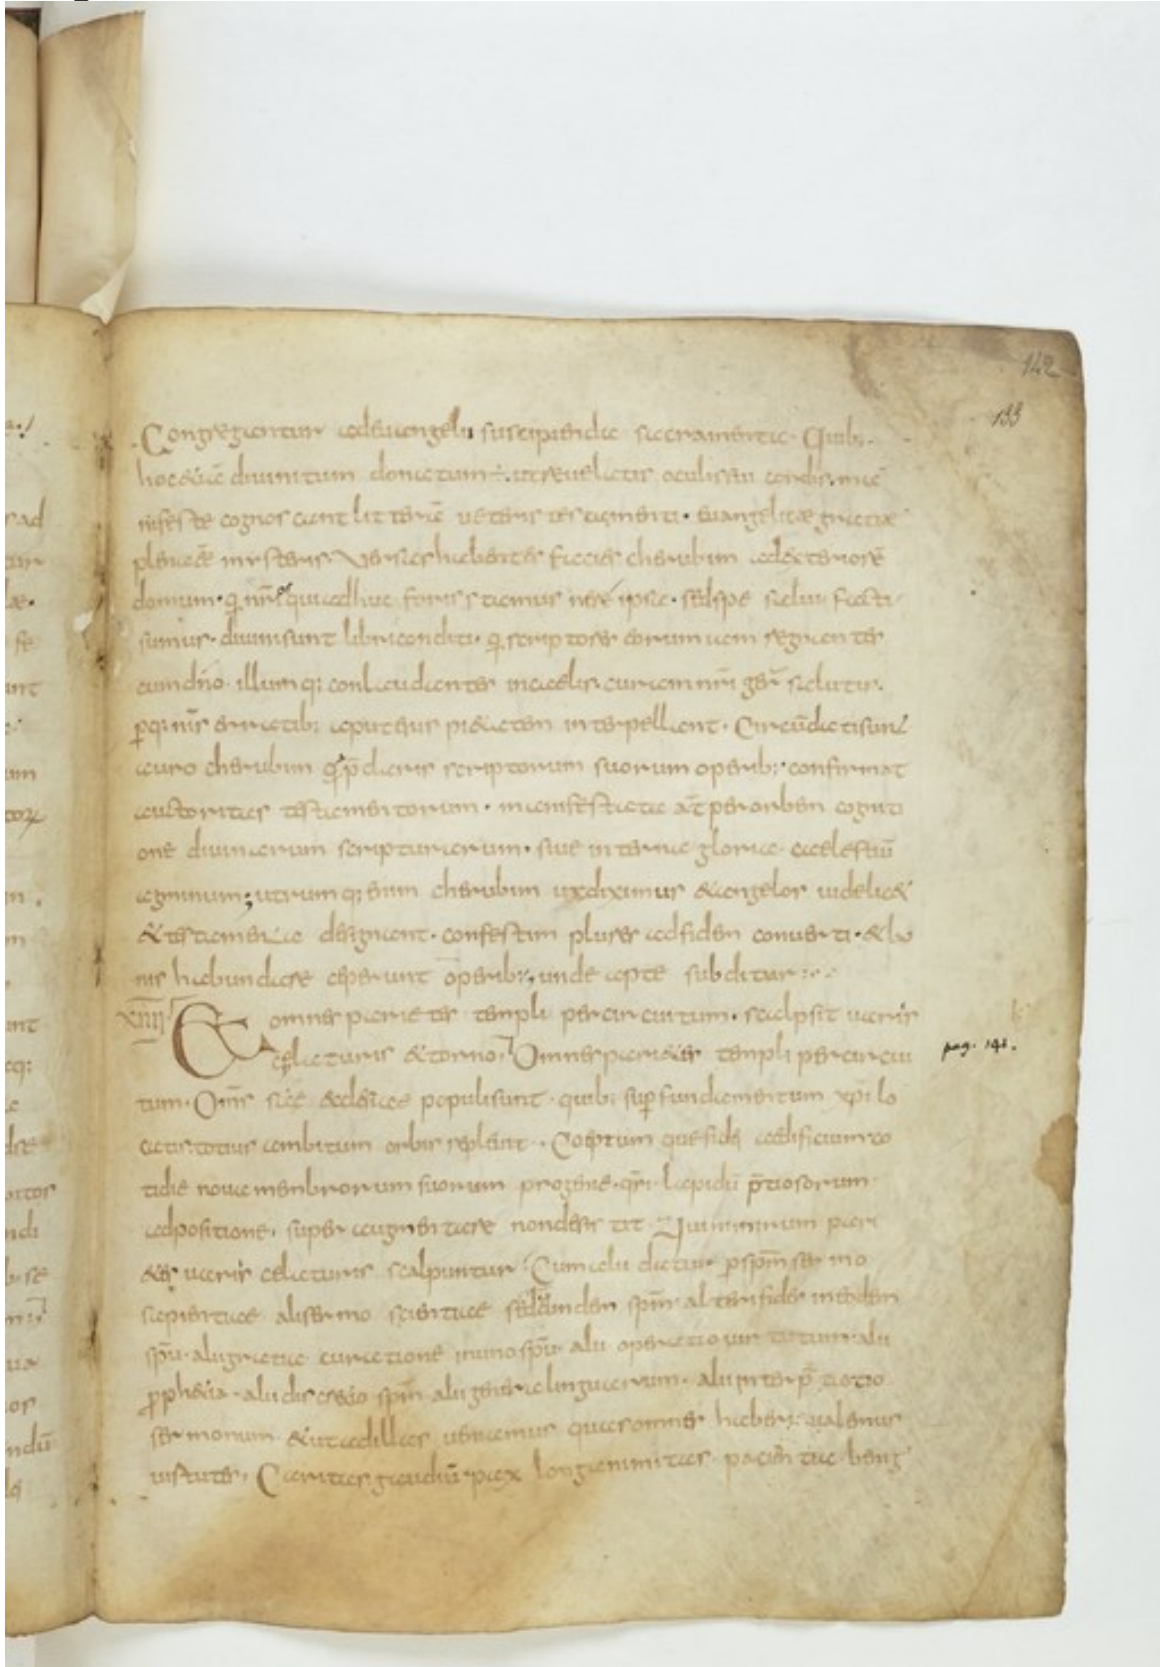 142
133
Congregantur ad euangelii suscipienda sacramenta. Quib;
hoc &iā diuinitum donatum ÷. ut reuelatis oculis sui cordis. ma
nifeste cognoscant litterā ueteris testamenti. euangelicae gratiae
plenā eē mysteriis. Versas habentes facies cherubim ad exteriorē
domum. qui adhuc foris stamus nrē ipsa. sed spe salui facti
sumus. diuini sunt libri conditi. scriptores eorum iam regnantes
cum dnō. illumq; conlaudantes in caelis. curam nrī ger̄ salutis.
pq; nīs erratib; aput eius pi&atem interpellant. Circūdati sunt
auro cherubim p̄claris scriptorum suorum operib; confirmat
auctoritas testamentorum. manifestata aūt per orbem cogniti
one diuinarum scripturarum. siue interna gloria caelestiū
agminum; utrumq; enim cherubim ut diximus & angelos uidelic&
& testamenta designant. confestim plures ad fidem conuerti. & bo
nis habundare ceperunt operib; unde apte subditur
XIIII Et omnes parietes templi per circuitum. scalpsit uariis
celaturis & torno. Omnes pari&es templi per circui
tum. Omīs scāe eclesiae populi sunt. quib; sup fundamentum xpī lo
catis. totius ambitum orbis repleuit. Coeptum quē fidei aedificium co
tidie noua menbrorum suorum progenie. qsī. lapidū p̄tiosorum
adpositione. super augmentare non desistit. Qui nimirum pari
&es uariis celaturis scalpuntur. Cum alii datur p spm̄ sermo
sapientiae. alii sermo scientiae sed eundem spm̄. alteri fides in eodem
spū. alii gratia curatione in uno spū. alii operatio uirtutum. alii
proph&ia. alii discr&io spm̄ alii genera linguarum. alii interp̄tatio
sermonum. & ut ad illas ueniamus quas omnes habere ualemus
uirtutes. Caritas. gaudiū. pax longanimitas. pacientiae. benig
pag. 141.